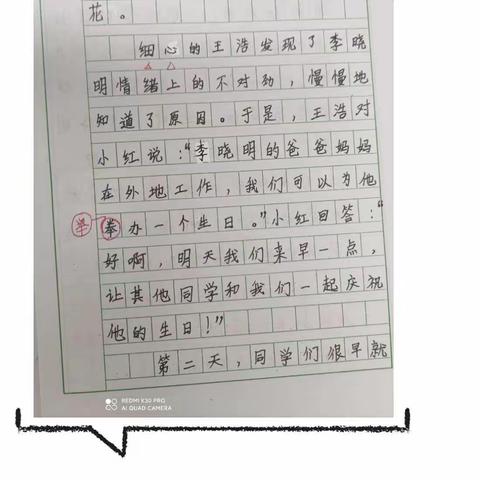 花。
细心的王浩发现了李晓
明情绪上的不对劲，慢慢地
知道了原因。于是，王浩对
小红说：“李晓明的爸爸妈妈
在外地工作，我们可以为他
举 举办一个生日。”小红回答：“
好啊，明天我们来早一点，
让其他同学和我们一起庆祝
他的生日！”
第二天，同学们很早就
REDMI K30 PRO
AI QUAD CAMERA